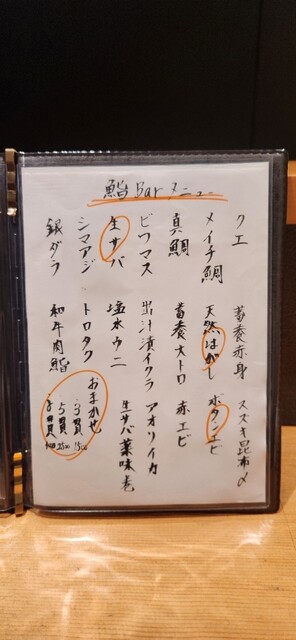 鮨Barメニュー
クエ
蓄養赤身
スズキ昆布〆
メイチ鯛
天然はがし
ボタンエビ
真鯛
蓄養大トロ
赤エビ
ビワマス
出汁漬イクラ
アオリイカ
生サバ
塩水ウニ
生サバ薬味巻
シマアジ
トロタク
おまかせ
3貫
5貫
8貫
銀ダラ
和牛肉鮨